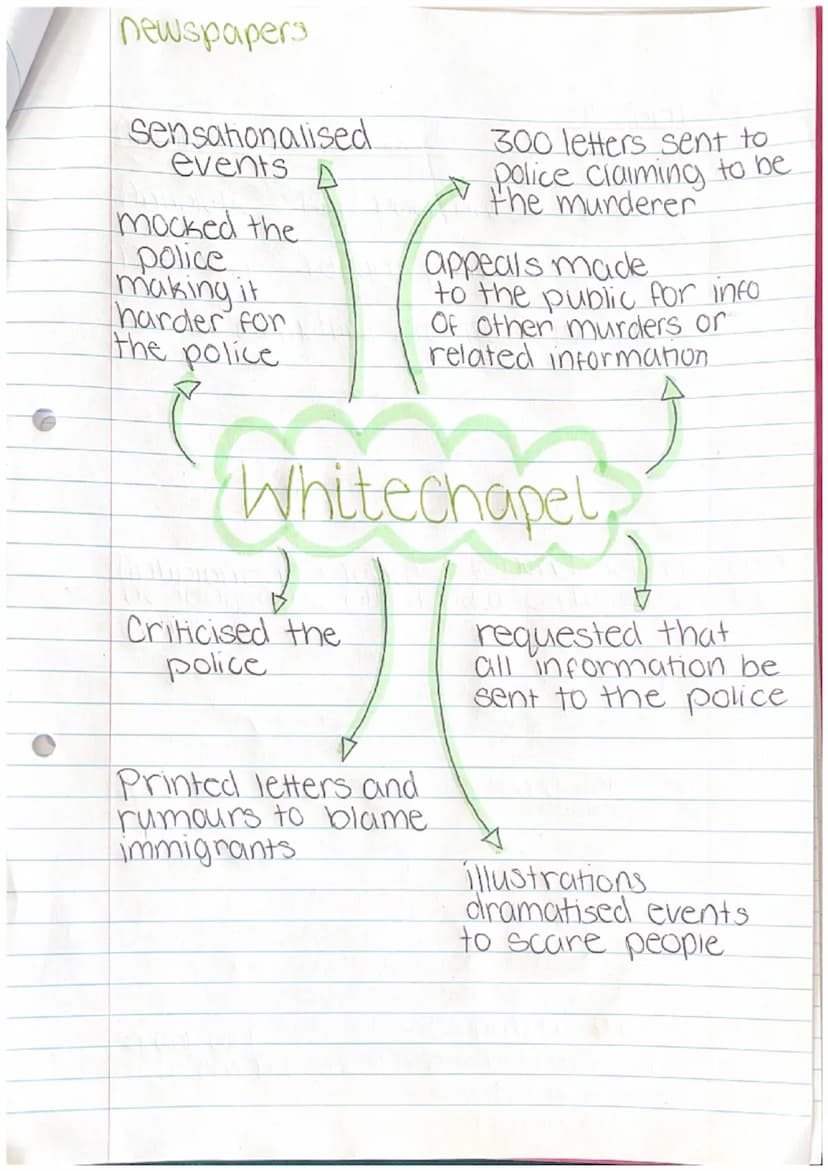 newspapers
sensationalised
events
300 letters sent to
police claiming to be
the murderer
mocked the
police
making it
harder for
the police
appeals made
to the public for info
of other murders or
related information
Whitechapel
Criticised the
police
requested that
all information be
sent to the police
Printed letters and
rumours to blame
immigrants
illustrations
dramatised events
to scare people